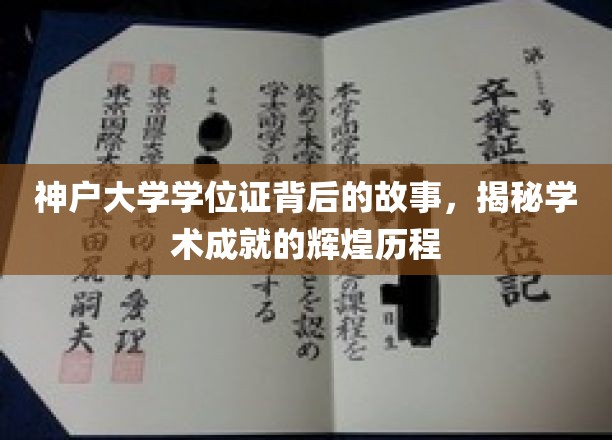 神户大学学位证背后的故事，揭秘学
术成就的辉煌历程
第 号
卒業証 学位記
本学商学部 定の課程を
修めて本学 ことを認め
学士(商学)の学 する
平成
東京国際大学商 田村愛理
東京国際大学 長田尻嗣夫